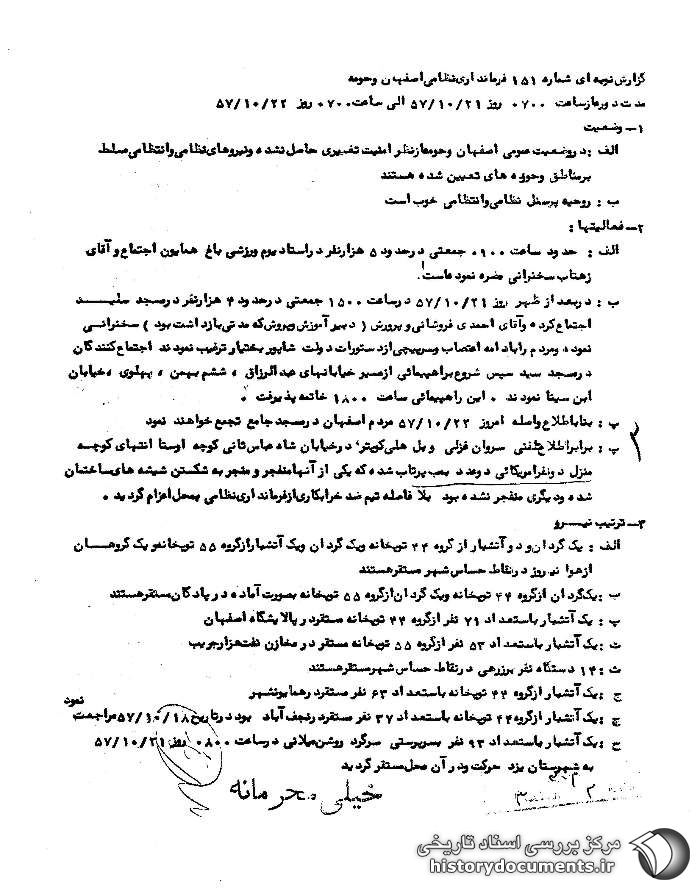 گزارش نوبه ای شماره ۱۵۱ فرمانداری نظامی اصفهان وحومه
مدت دوره از ساعت ۰۷۰۰ روز ۵۷/۱۰/۲۱ الی ساعت ۰۷۰۰ روز ۵۷/۱۰/۲۲
۱- وضعیت
الف : در وضعیت عمومی اصفهان وحومه از نظر امنیت تغییری حاصل نشده ونیروهای نظامی وانتظامی مسلط
برمناطق وحوزه های تعیین شده هستند
ب : روحیه پرسنل نظامی وانتظامی خوب است
۲- فعالیتها :
الف : حدود ساعت ۰۹۰۰ جمعتی درحدود ۵ هزارنفر دراستادیوم ورزشی باغ همایون اجتماع و آقای
زهتاب سخنرانی مضره نموده است .
ب : دربعد از ظهر روز ۵۷/۱۰/۲۱ درساعت ۱۵۰۰ جمعتی درحدود ۴ هزارنفر درمسجد سید
اجتماع کرده وآقای احمدی فروشانی و پرورش ( دبیر آموزش وپرورش که مدتی بازداشت بود ) سخنرانی
نموده ومردم را بادامه اعتصاب وسرپیچی از دستورات دولت شاپور بختیار ترغیب نمودند اجتماع کنندگان
درمسجد سید سپس شروع براهپیمائی ازمسیر خیابانهای عبدالرزاق ، ششم بهمن ، پهلوی ، خیابان
ابن سینا نمودند . این راهپیمائی ساعت ۱۸۰۰ خاتمه پذیرفت .
پ : بنا باطلاع واصله امروز ۵۷/۱۰/۲۲ مردم اصفهان درمسجد جامع تجمع خواهند نمود
پ : برابر اطلاع تلفنی سروان قزلی و بل هلی کوپتر درخیابان شاه عباس ثانی کوچه اوستا انتهای کوچه
منزل دونفر امریکائی دوعدد بمب پرتاب شده که یکی از آنها منفجر و منجر به شکستن شیشه های ساختمان
شده ودیگری منفجر نشده بود بلافاصله تیم ضد خرابکاری ازفرمانداری نظامی بمحل اعزام گردید .
۳- ترتیب نیرو
الف : یک گردان و دو آتشبار از گروه ۴۴ توپخانه ویک گردان ویک آتشبار ازگروه ۵۵ توپخانه ویک گروهان
ازهوا نیروز درنقاط حساس شهر مستقرهستند
ب : یکگردان ازگروه ۴۴ توپخانه ویک گردان ازگروه ۵۵ توپخانه بصورت آماده درپادگان مستقرهستند
پ : یک آتشبار باستعداد ۷۱ نفر ازگروه ۴۴ توپخانه مستقر درپالایشگاه اصفهان
ت : یک آتشبار باستعداد ۵۳ نفر ازگروه ۵۵ توپخانه مستقر در مخازن نفت هزارجریب
ث : ۱۴ دستگاه نفر برزرهی درنقاط حساس شهرمستقرهستند
ج : یک آتشبار ازگروه ۴۴ توپخانه باستعداد ۶۳ نفر مستقر درهمایونشهر
چ : یک آتشبار ازگروه ۴۴ توپخانه باستعداد ۳۷ نفر مستقر درنجف آباد بود درتاریخ ۵۷/۱۰/۱۸ مراجعت نمود
ح : یک آتشبار باستعداد ۹۳ نفر بسرپرستی سرگرد روشن میلانی درساعت ۰۸۰۰ روز ۵۷/۱۰/۲۱
به شهرستان یزد حرکت ودر آن محل مستقر گردید
خیلی محرمانه
۲
۳
مرکز بررسی اسناد تاریخی
historydocuments.ir